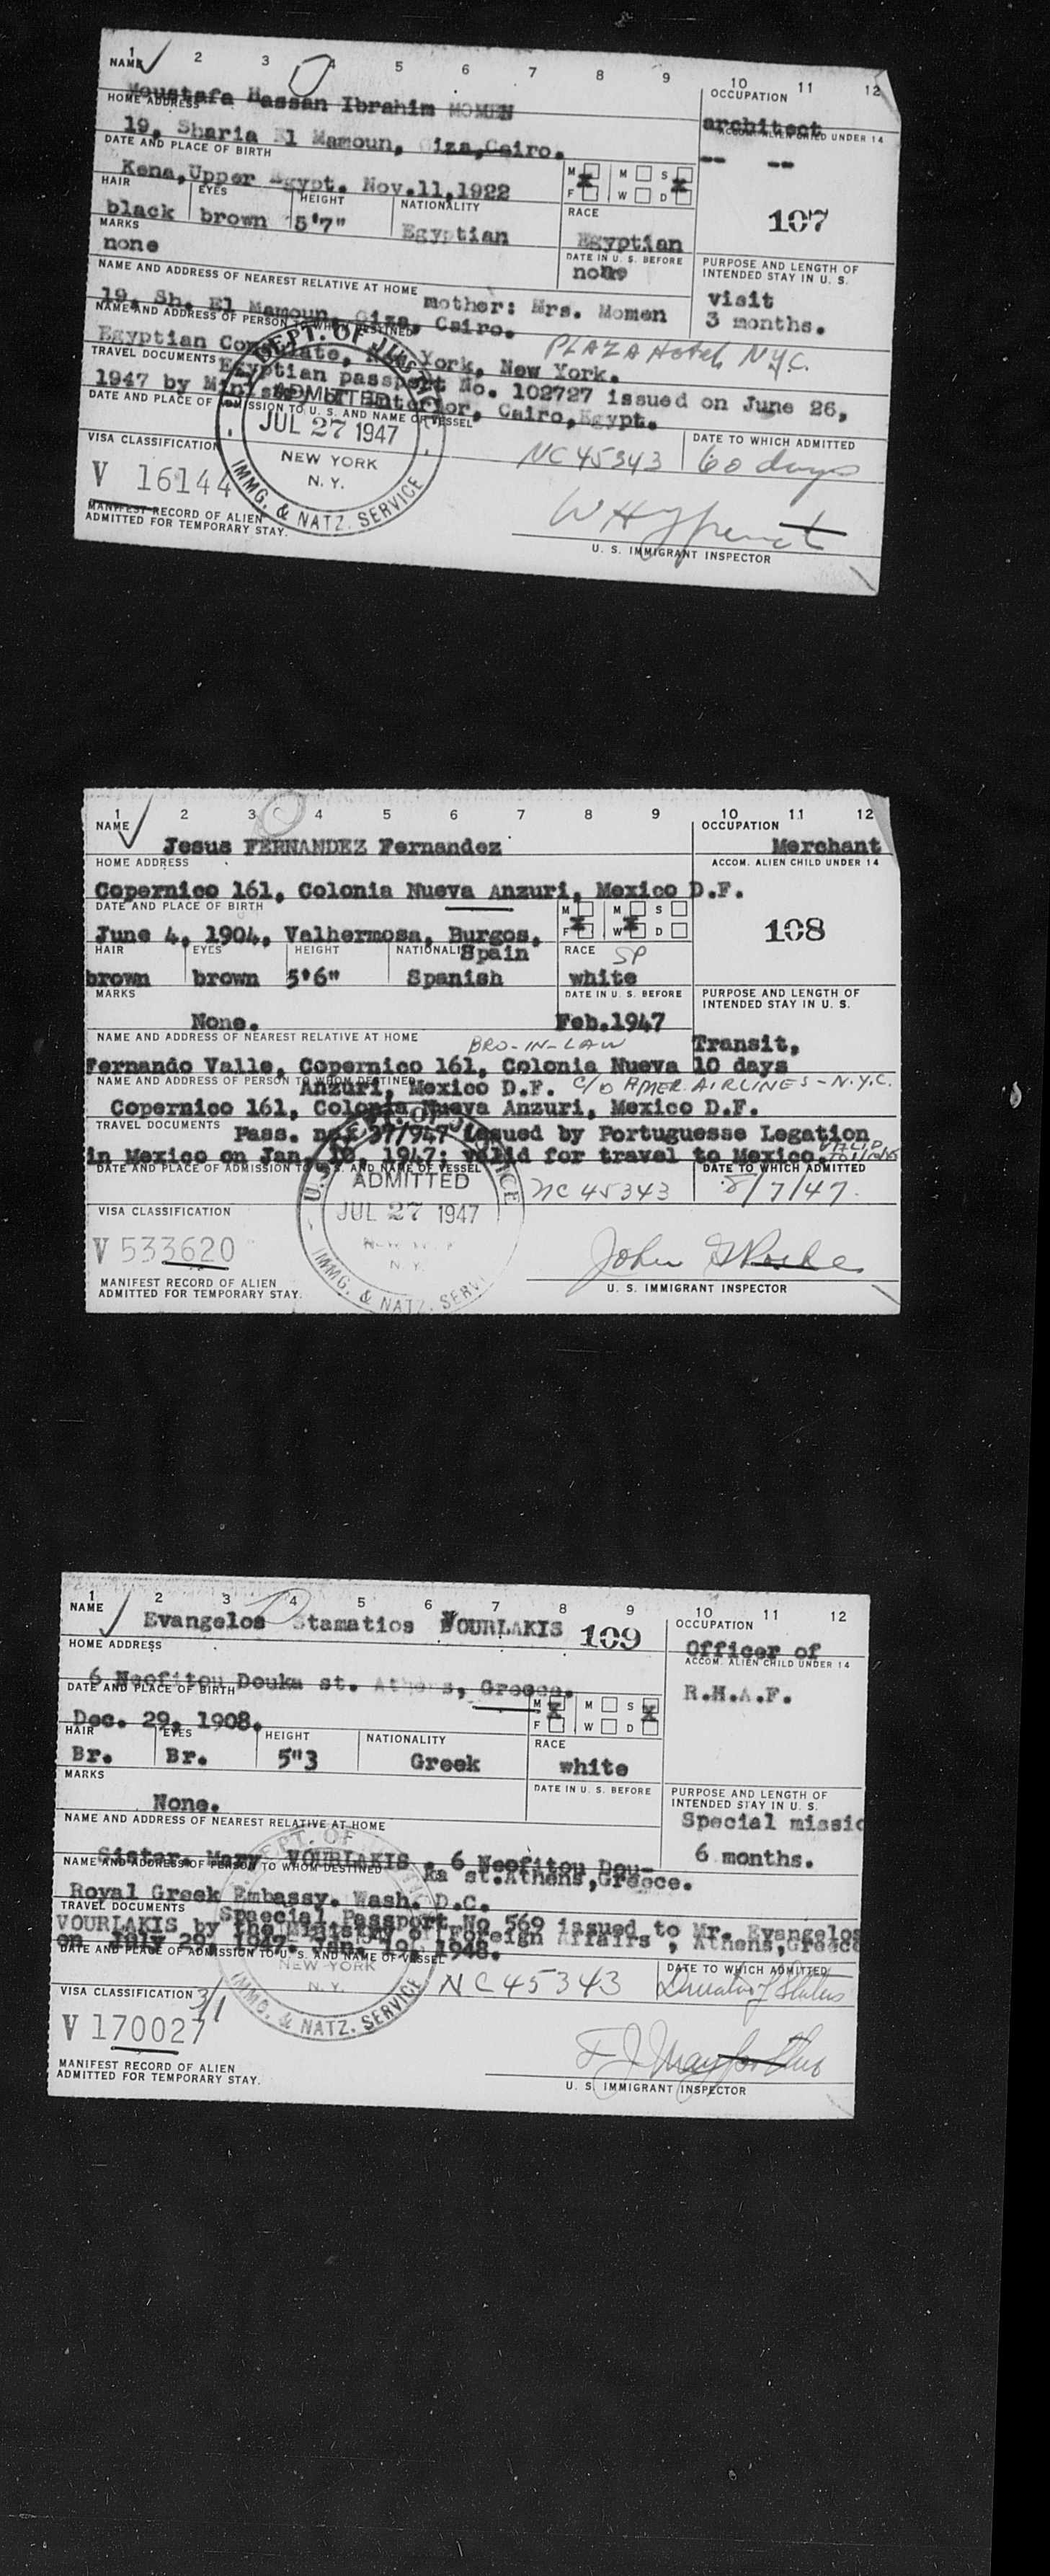 1 2 3 4 5 6 7 8 9 10 11 12
NAME
OCCUPATION
Moustafa Hassan Ibrahim MOMEN
architect
HOME ADDRESS
UNDER 14
19, Sharia El Mamoun, Giza,Cairo.
-- --
DATE AND PLACE OF BIRTH
M M S
Kena,Upper Egypt. Nov.11,1922
F W D
107
HAIR EYES HEIGHT NATIONALITY RACE
black brown 5'7" Egyptian Egyptian
MARKS
DATE IN U. S. BEFORE
PURPOSE AND LENGTH OF
INTENDED STAY IN U. S.
none
none
visit
3 months.
NAME AND ADDRESS OF NEAREST RELATIVE AT HOME
mother: Mrs. Momen
19, Sh. El Mamoun, Giza, Cairo.
NAME AND ADDRESS OF PERSON TO WHOM DESTINED
PLAZA Hotel, N.Y.C.
Egyptian Consulate, New York, New York.
TRAVEL DOCUMENTS
Egyptian passport No. 102727 issued on June 26,
1947 by Minister of Interior, Cairo,Egypt.
DATE AND PLACE OF ADMISSION TO U. S. AND NAME OF VESSEL
DEPT. OF
ADMITTED
JUL 27 1947
NEW YORK
N. Y.
IMMG. & NATZ. SERVICE
NC45343
DATE TO WHICH ADMITTED
60 days
VISA CLASSIFICATION
V 16144
MANIFEST RECORD OF ALIEN
ADMITTED FOR TEMPORARY STAY.
U. S. IMMIGRANT INSPECTOR
1 2 3 4 5 6 7 8 9 10 11 12
NAME
OCCUPATION
Jesus FERNANDEZ Fernandez
Merchant
HOME ADDRESS
ACCOM. ALIEN CHILD UNDER 14
Copernico 161, Colonia Nueva Anzuri, Mexico D.F.
DATE AND PLACE OF BIRTH
M M S
June 4, 1904, Valhermosa, Burgos,
F W D
108
Spain
HAIR EYES HEIGHT NATIONALITY RACE
SP
brown brown 5'6" Spanish white
MARKS
DATE IN U. S. BEFORE
PURPOSE AND LENGTH OF
INTENDED STAY IN U. S.
None.
Feb.1947
NAME AND ADDRESS OF NEAREST RELATIVE AT HOME
BRO-IN-LAW
Transit,
Fernando Valle, Copernico 161, Colonia Nueva 10 days
NAME AND ADDRESS OF PERSON TO WHOM DESTINED
Anzuri, Mexico D.F.
C/O AMER. AIRLINES - N.Y.C.
Copernico 161, Colonia Nueva Anzuri, Mexico D.F.
TRAVEL DOCUMENTS
Pass. 37/947 issued by Portuguesse Legation
in Mexico on Jan. 10, 1947; valid for travel to Mexico.
VALID
DATE AND PLACE OF ADMISSION TO U. S. AND NAME OF VESSEL
DATE TO WHICH ADMITTED
ADMITTED
JUL 27 1947
N. Y.
IMMG. & NATZ. SERV
NC 45343
8/7/47.
VISA CLASSIFICATION
V 533620
MANIFEST RECORD OF ALIEN
ADMITTED FOR TEMPORARY STAY.
U. S. IMMIGRANT INSPECTOR
1 2 3 4 5 6 7 8 9 10 11 12
NAME
OCCUPATION
Evangelos Stamatios VOURLAKIS
109
Officer of
HOME ADDRESS
ACCOM. ALIEN CHILD UNDER 14
6 Neofitou Douka st. Athens, Greece.
R.H.A.F.
DATE AND PLACE OF BIRTH
M M S
Dec. 29, 1908.
F W D
HAIR EYES HEIGHT NATIONALITY RACE
Br. Br. 5"3 Greek white
MARKS
DATE IN U. S. BEFORE
PURPOSE AND LENGTH OF
INTENDED STAY IN U. S.
None.
Special missio
NAME AND ADDRESS OF NEAREST RELATIVE AT HOME
6 months.
Sister. Mary VOURLAKIS , 6 Neofitou Dou-
NAME AND ADDRESS OF PERSON TO WHOM DESTINED
ka st.Athens,Greece.
Royal Greek Embassy. Wash. D.C.
TRAVEL DOCUMENTS
Special Passport No 569 issued to Mr. Evangelos
VOURLAKIS by the Ministry of Foreign Affairs , Athens,Greece
on July 29, 1947. Jan. 19, 1948.
DATE AND PLACE OF ADMISSION TO U. S. AND NAME OF VESSEL
DEPT. OF
NEW YORK
N. Y.
IMMG. & NATZ. SERVICE
NC45343
DATE TO WHICH ADMITTED
Duration of Status
VISA CLASSIFICATION 3/1
V 170027
MANIFEST RECORD OF ALIEN
ADMITTED FOR TEMPORARY STAY.
U. S. IMMIGRANT INSPECTOR